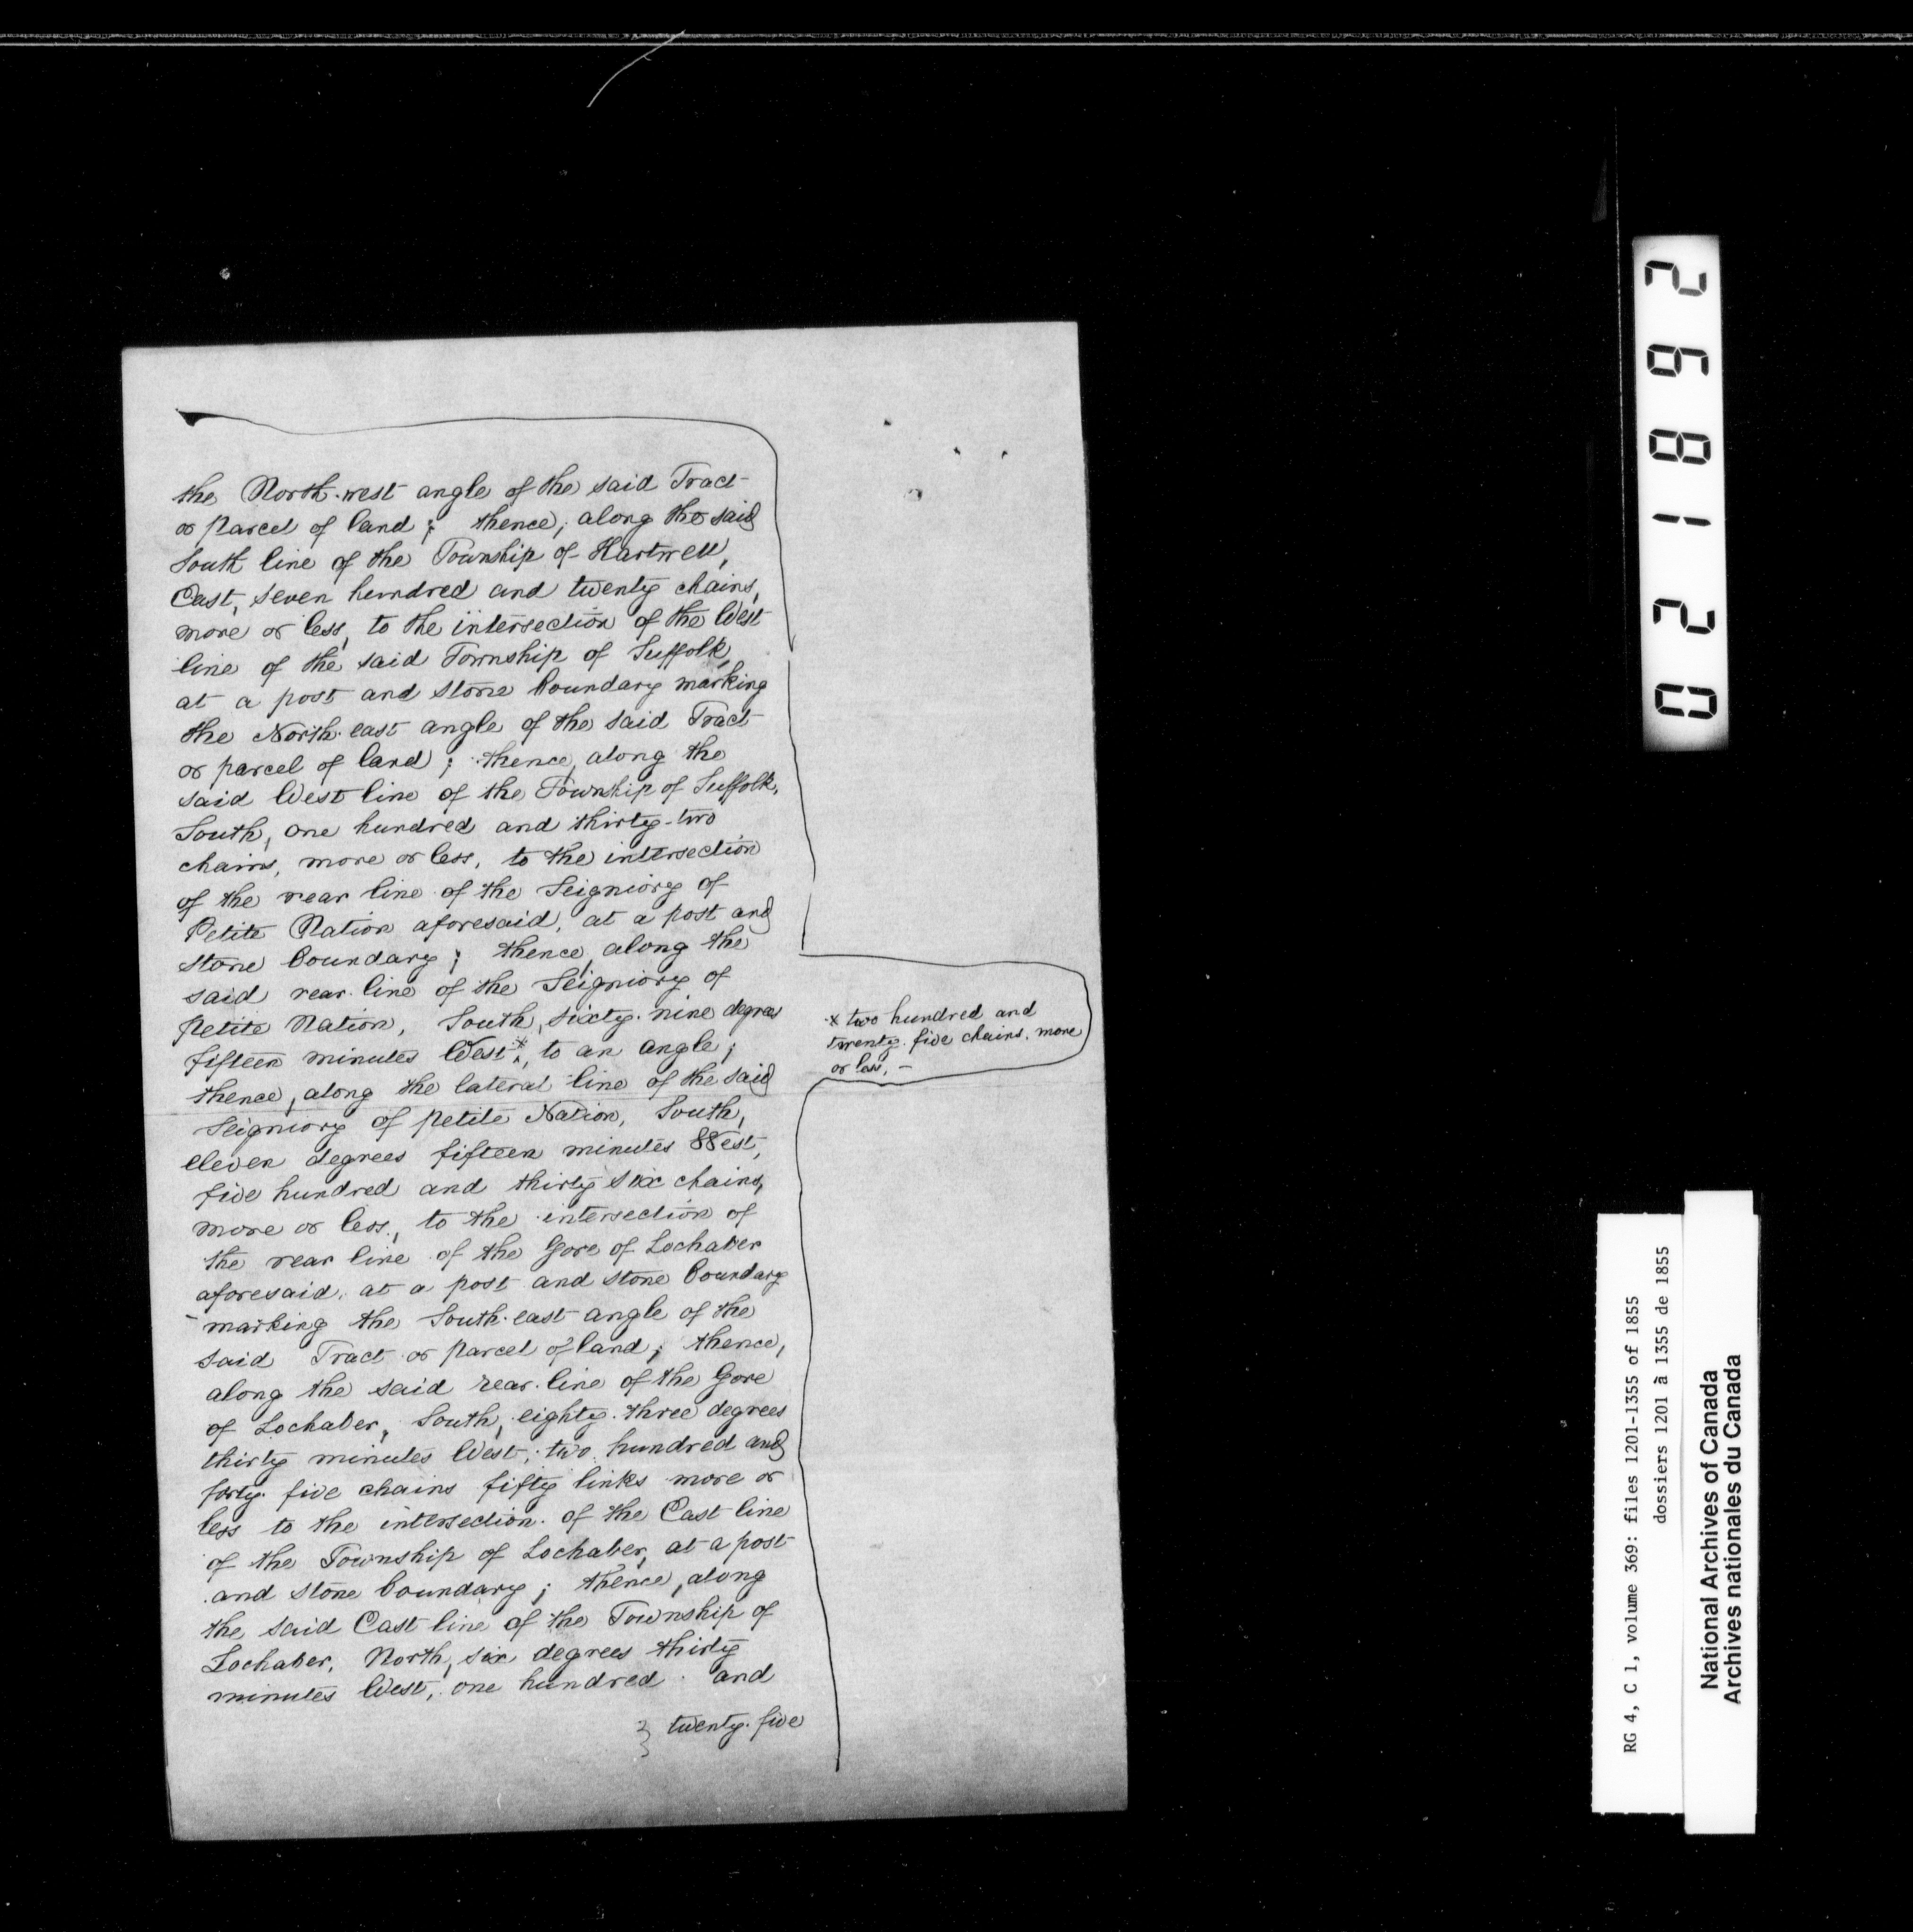 the North-west angle of the said Tract
or Parcel of land; thence, along the said
South line of the Township of Hartwell,
East, seven hundred and twenty chains,
more or less, to the intersection of the West
line of the said Township of Suffolk,
at a post and stone boundary marking
the North-east angle of the said Tract
or parcel of land; thence, along the
said West line of the Township of Suffolk,
South, one hundred and thirty-two
chains, more or less, to the intersection
of the rear line of the Seigniory of
Petite Nation aforesaid, at a post and
stone boundary; thence, along the
said rear line of the Seigniory of
Petite Nation, South, sixty-nine degrees
fifteen minutes West,* to an angle;
* two hundred and
twenty-five chains, more
or less, -
thence, along the lateral line of the said
Seigniory of Petite Nation, South,
eleven degrees fifteen minutes West,
five hundred and thirty six chains,
more or less, to the intersection of
the rear line of the Gore of Lochaber
aforesaid, at a post and stone boundary
marking the South-east angle of the
said Tract or Parcel of land; thence,
along the said rear-line of the Gore
of Lochaber, South, eighty-three degrees
thirty minutes West, two hundred and
forty-five chains fifty links more or
less to the intersection of the East line
of the Township of Lochaber, at a post
and stone boundary; thence, along
the said East line of the Township of
Lochaber, North, six degrees thirty
minutes West, one hundred and
twenty-five
021862
RG 4, C 1, volume 369: files 1201-1355 of 1855
dossiers 1201 à 1355 de 1855
National Archives of Canada
Archives nationales du Canada